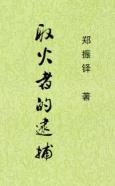 取火者的逮捕
郑振铎 著